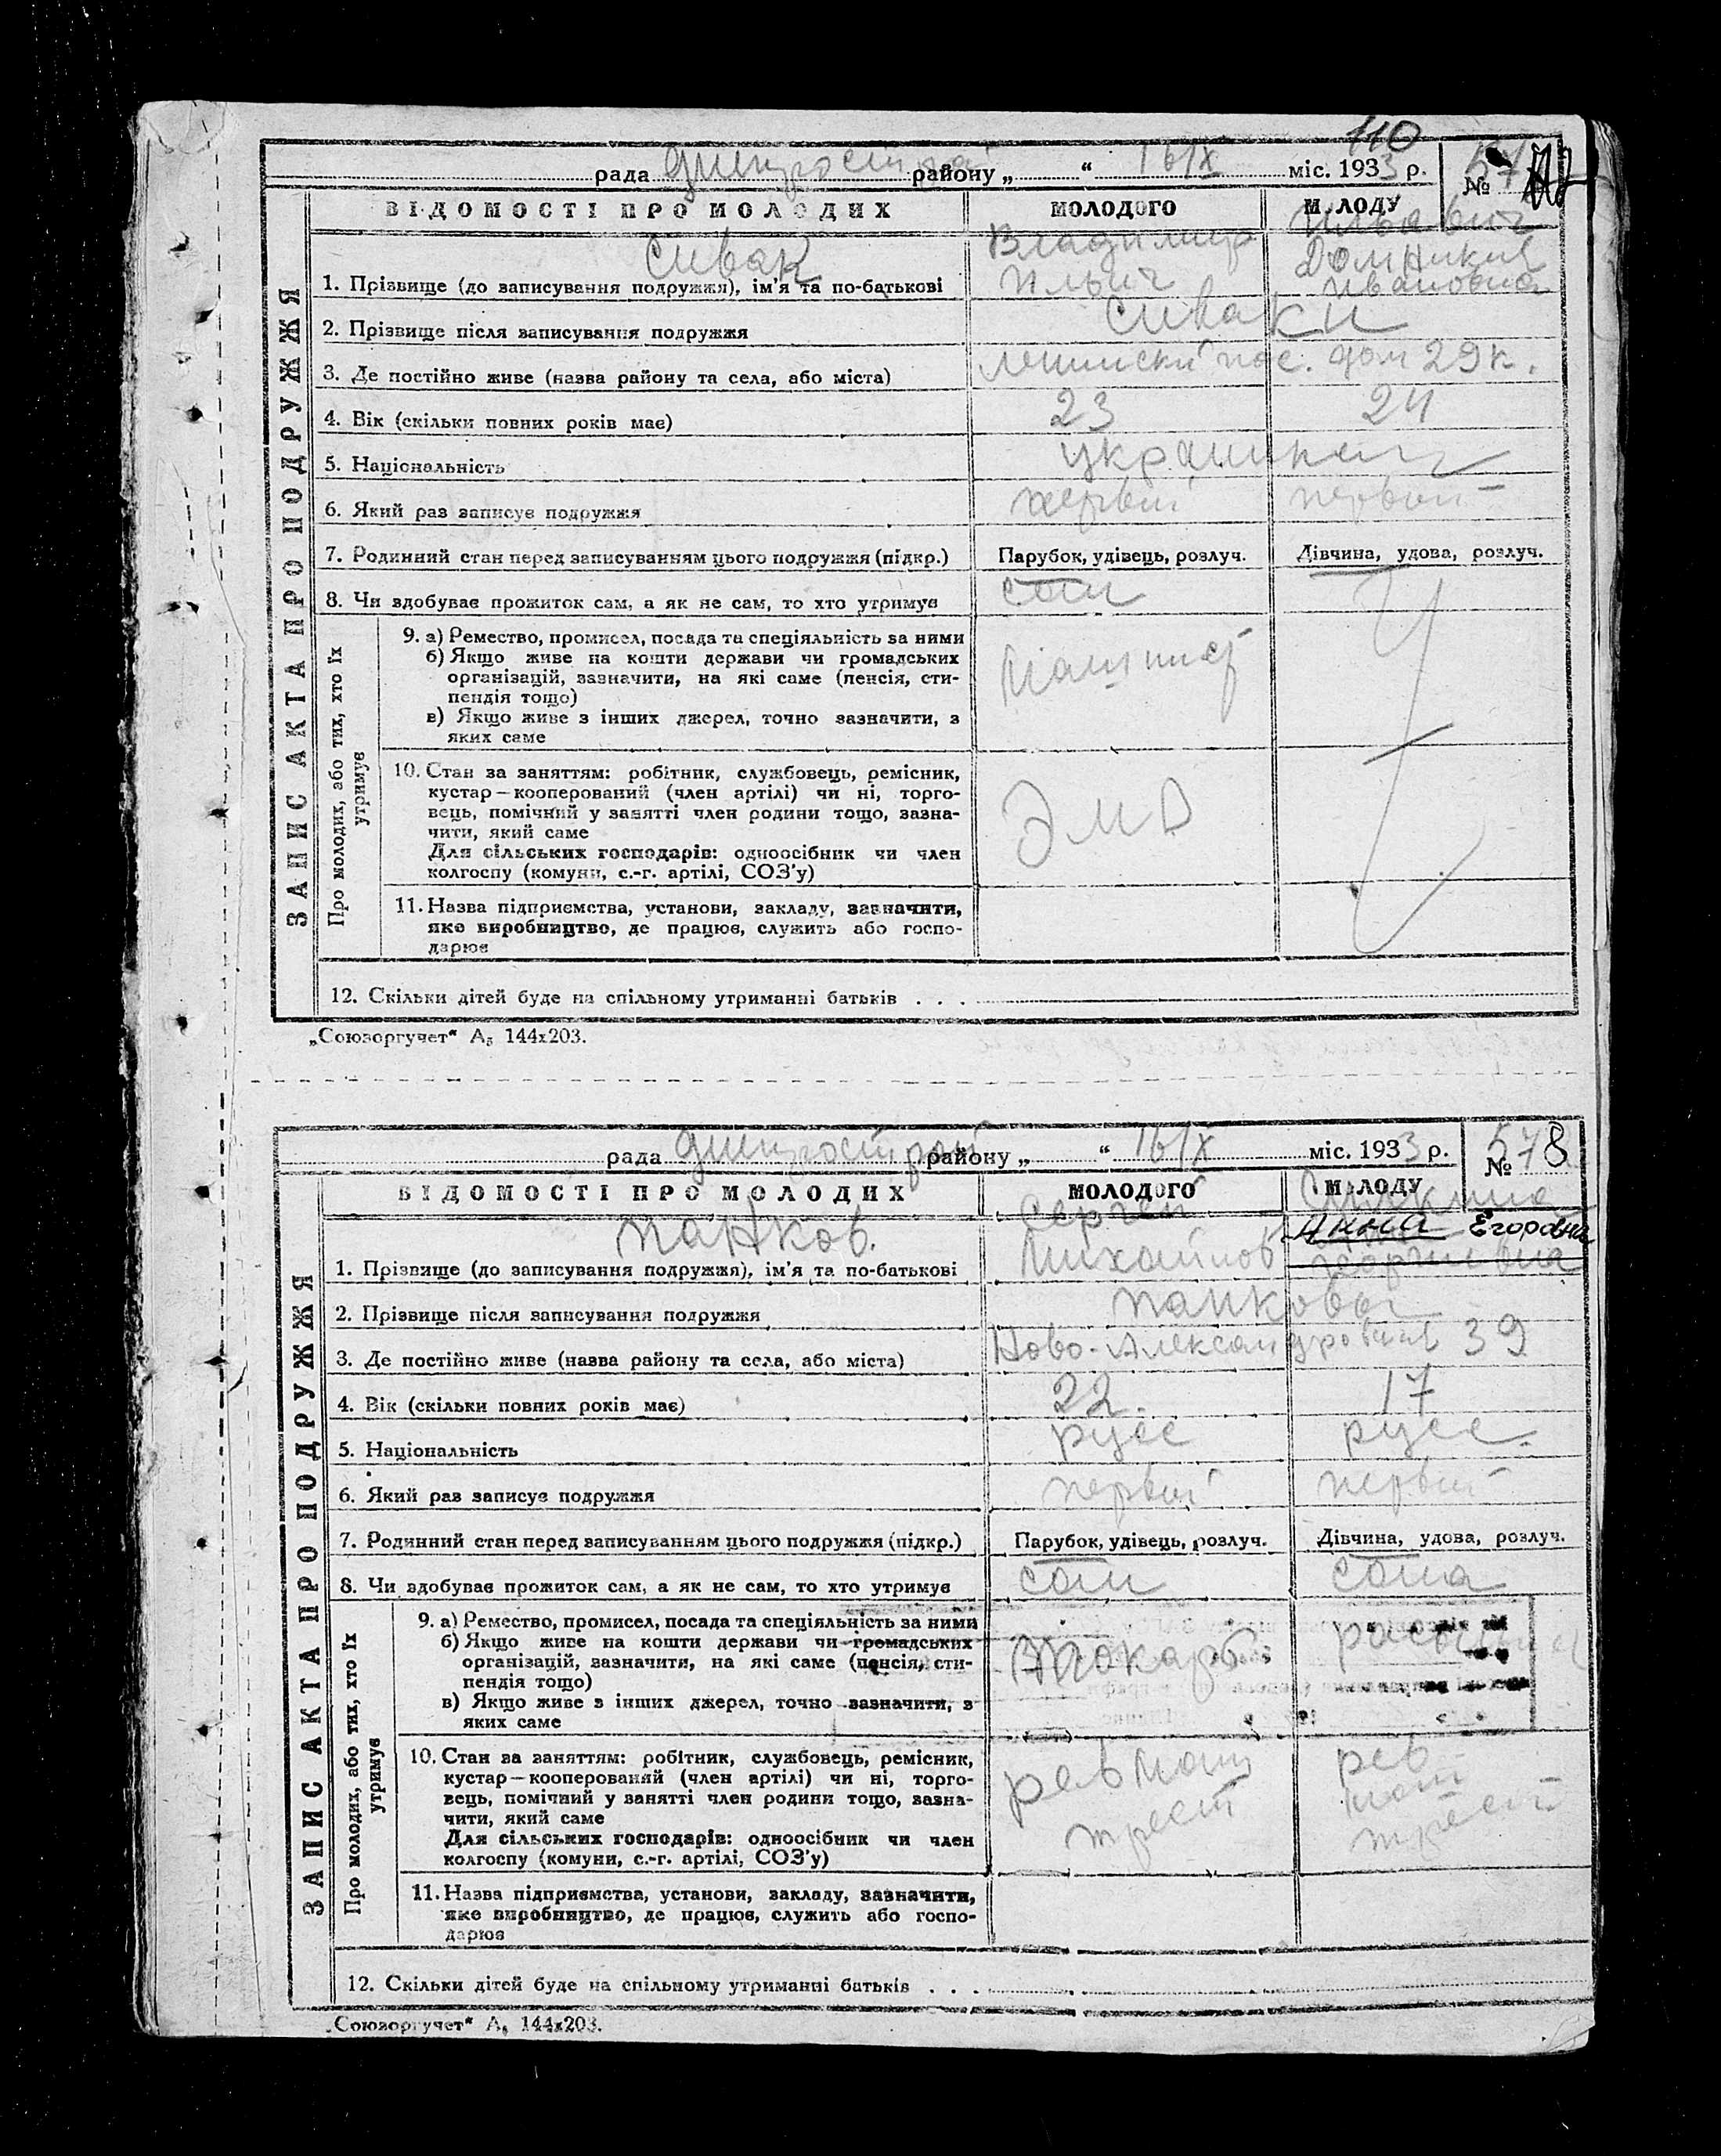 110
рада району „ “ 16/IX міс. 1933 р. №
ВІДОМОСТІ ПРО МОЛОДИХ МОЛОДОГО МОЛОДУ
ЗАПИС АКТА ПРО ПОДРУЖЖЯ
Сивак Владимир
Домникия
1. Прізвище (до записування подружжя), ім'я та по-батькові Ильич Ивановна
2. Прізвище після записування подружжя Сиваки
3. Де постійно живе (назва району та села, або міста) пос. дом 29 к.
4. Вік (скільки повних років має) 23 24
5. Національність
6. Який раз записує подружжя первый первый
7. Родинний стан перед записуванням цього подружжя (підкр.) Парубок, удівець, розлуч. Дівчина, удова, розлуч.
8. Чи здобуває прожиток сам, а як не сам, то хто утримує сам
Про молодих, або тих, хто їх утримує
9. а) Ремество, промисел, посада та спеціяльність за ними
б) Якщо живе на кошти держави чи громадських
організацій, зазначити, на які саме (пенсія, сти-
пендія тощо) Машинист
в) Якщо живе з інших джерел, точно зазначити, з
яких саме
10. Стан за заняттям: робітник, службовець, ремісник,
кустар—кооперований (член артілі) чи ні, торго-
вець, помічний у занятті член родини тощо, зазна-
чити, який саме
Для сільських господарів: одноосібник чи член
колгоспу (комуни, с.-г. артілі, СОЗ'у)
11. Назва підприємства, установи, закладу, зазначити,
яке виробництво, де працює, служить або госпо-
дарює
12. Скільки дітей буде на спільному утриманні батьків . . .
„Союзоргучет“ А₅ 144х203.
рада району „ “ 16/IX міс. 1933 р. № 578
ВІДОМОСТІ ПРО МОЛОДИХ МОЛОДОГО МОЛОДУ
ЗАПИС АКТА ПРО ПОДРУЖЖЯ
Панков. Сергей Анна Егоровна
1. Прізвище (до записування подружжя), ім'я та по-батькові Михайлов Георгиевна
2. Прізвище після записування подружжя Панковы
3. Де постійно живе (назва району та села, або міста) Ново-Александровка 39
4. Вік (скільки повних років має) 22. 17
5. Національність русс русс.
6. Який раз записує подружжя первый первый
7. Родинний стан перед записуванням цього подружжя (підкр.) Парубок, удівець, розлуч. Дівчина, удова, розлуч.
8. Чи здобуває прожиток сам, а як не сам, то хто утримує сам сама
Про молодих, або тих, хто їх утримує
9. а) Ремество, промисел, посада та спеціяльність за ними
б) Якщо живе на кошти держави чи громадських
організацій, зазначити, на які саме (пенсія, сти-
пендія тощо) токарь
в) Якщо живе з інших джерел, точно зазначити, з
яких саме
10. Стан за заняттям: робітник, службовець, ремісник,
кустар—кооперований (член артілі) чи ні, торго-
вець, помічний у занятті член родини тощо, зазна-
чити, який саме трест трест
Для сільських господарів: одноосібник чи член
колгоспу (комуни, с.-г. артілі, СОЗ'у)
11. Назва підприємства, установи, закладу, зазначити,
яке виробництво, де працює, служить або госпо-
дарює
12. Скільки дітей буде на спільному утриманні батьків . . .
„Союзоргучет“ А₅ 144х203.